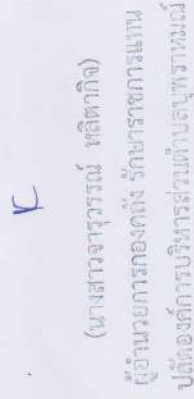 (นางสาวจารุวรรณ์ หลิตากิจ)
ผู้อำนวยการกองคลัง รักษาราชการแทน
ปลัดองค์การบริหารส่วนตำบลบุพราหมณ์